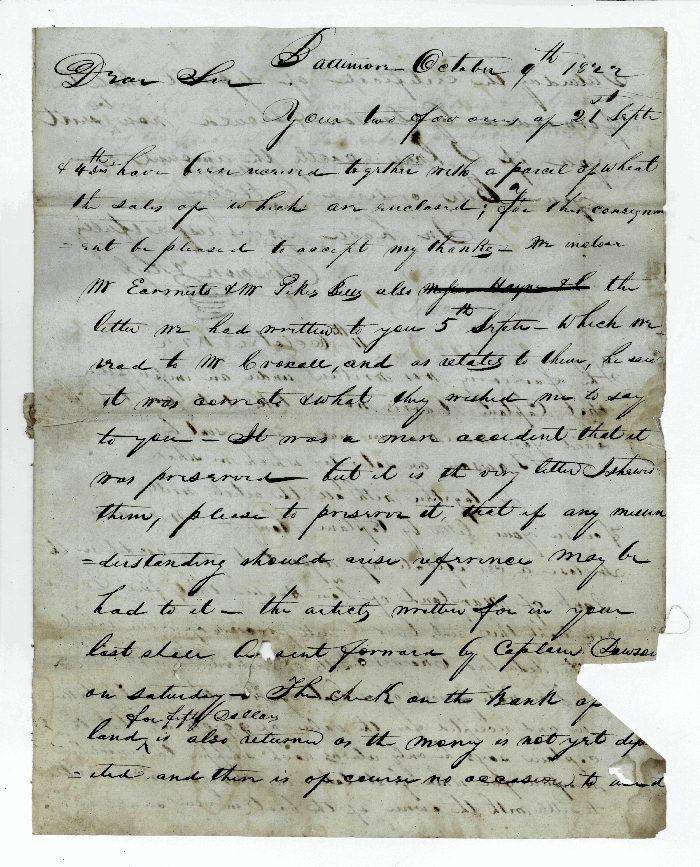 Baltimore October 9th 1822
Dear Sir
Your two favours of 21st Septr
& 4th Ins have been received together with a parcel of wheat
the sales of which are enclosed; for this consignm
=ent be pleased to accept my thanks – We inclose
Mr Earnests & Mr Pikes Bills also the
letter we had written to you 5th Septr – which we
read to Mr Croxall, and as relates to them, he said
it was correct & what they wished me to say
to you – It was a mere accident that it
was preserved – but it is the very letter I shewed
them, please to preserve it, that if any misun
=derstanding should arise reference may be
had to it – the articles written for in your
last shall be sent forward by Captain Dawson
on saturday – The check on the Bank of
for fifty Dollars
land is also returned as the money is not yet dep
=ited and there is of course no occasion to